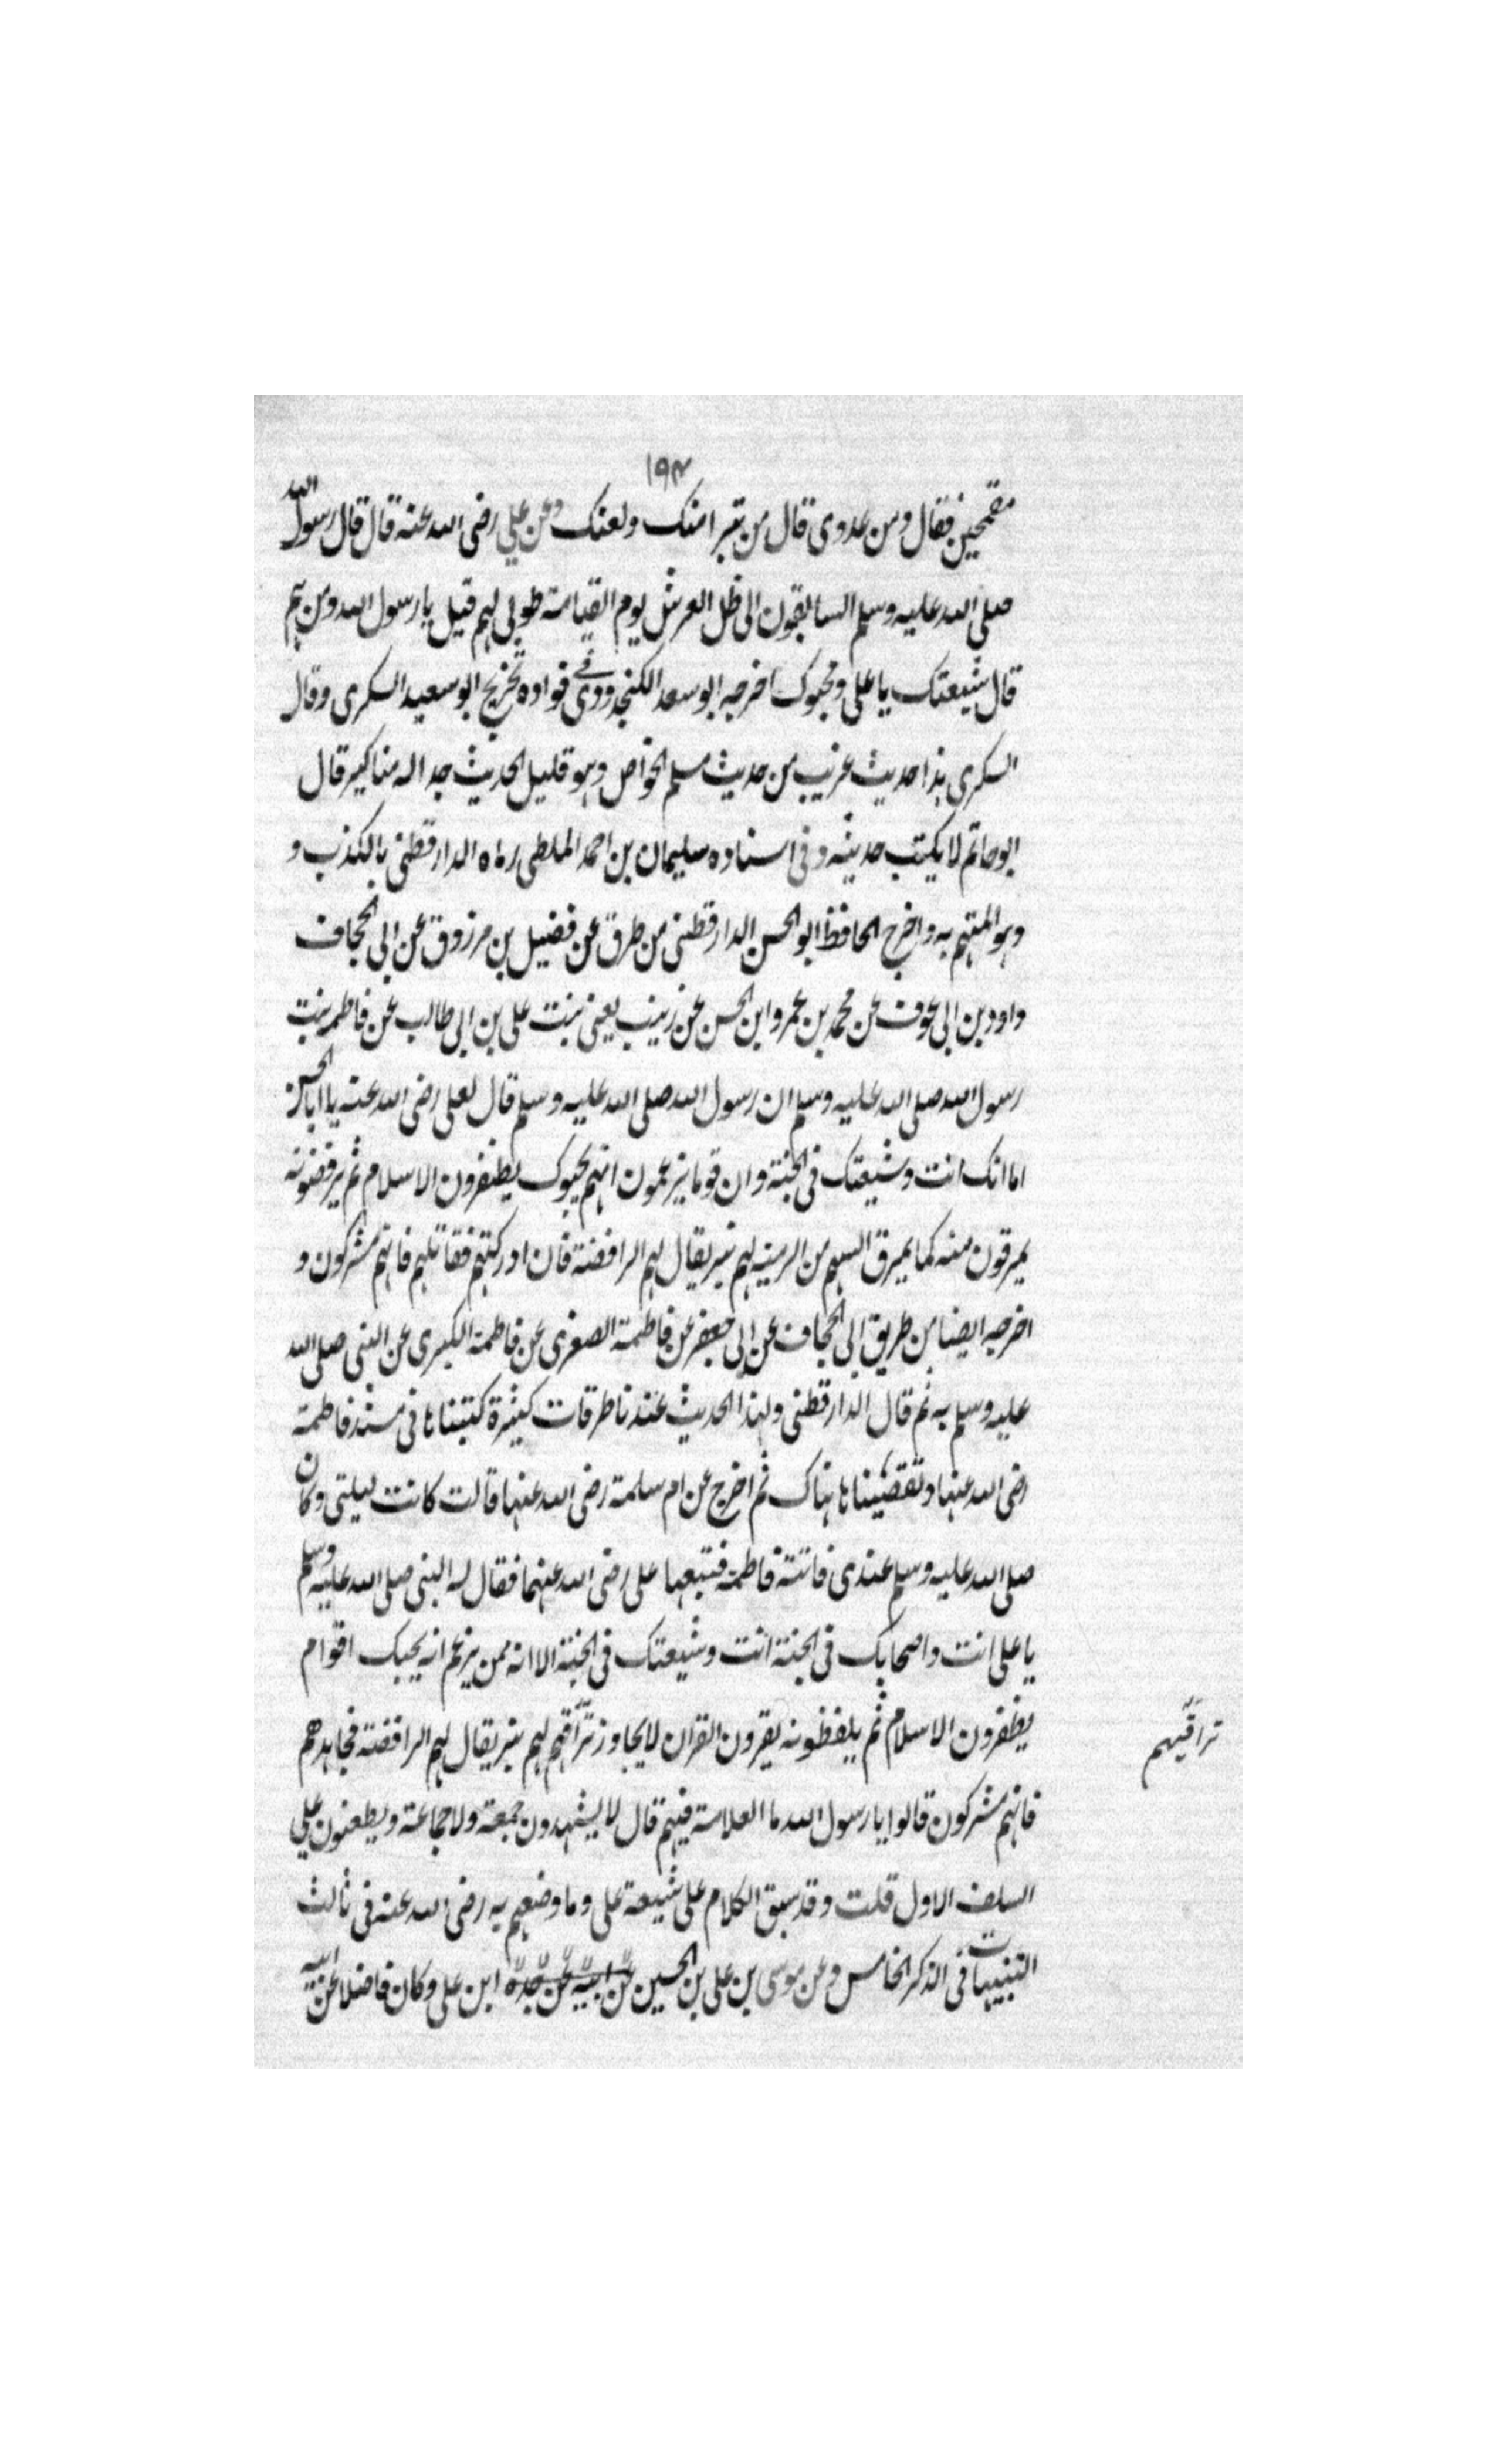 ١٩٣
مقمحين فقال ومن عدوى قال من تبرا منك ولعنك وعن علي رضى الله عنه قال قال رسول الله
صلى الله عليه وسلم السابقون الى ظل العرش يوم القيامة طوبى لهم قيل يا رسول الله ومن هم
قال شيعتك يا على ومحبوك اخرجه ابو سعد الكنجرودى فى فواده تخريج ابو سعيد السكرى وقال
السكرى هذا حديث غريب من حديث مسلم الخواص وهو قليل الحديث جدا له مناكير قال
ابو حاتم لا يكتب حديثه وفى اسناده سليمان بن احمد الملطى رماه الدارقطنى بالكذب و
وهو المتهم به واخرج الحافظ ابو الحسن الدارقطنى من طرق عن فضيل بن مرزوق عن ابى الجحاف
داود بن ابى عوف عن محمد بن عمرو ابن الحسن عن زينب يعنى بنت على بن ابى طالب عن فاطمه بنت
رسول الله صلى الله عليه وسلم ان رسول الله صلى الله عليه وسلم قال لعلى رضى الله عنه يا ابا الحسن
اما انك انت وشيعتك فى الجنة وان قوما يزعمون انهم يحبوك يظفرون الاسلام ثم يرفضونه
يمرقون منه كما يمرق السهم من الرميه لهم نبز يقال لهم الرافضة فان ادركتهم فقاتلهم فانهم مشركون و
اخرجه ايضا من طريق ابى الجحاف عن ابى جعفر عن فاطمة الصغرى عن فاطمة الكبرى عن النبى صلى الله
عليه وسلم به ثم قال الدارقطنى ولهذا الحديث عندنا طرقات كثيرة كتبناها فى مسند فاطمة
رضى الله عنها وتقصيناها هناك ثم اخرج عن ام سلمة رضى الله عنها قالت كانت ليلتى وكان
صلى الله عليه وسلم عندى فاتته فاطمة فتبعها على رضى الله عنهما فقال له النبى صلى الله عليه وسلم
يا على انت واصحابك فى الجنة انت وشيعتك فى الجنة الا انه ممن يزعم انه يحبك اقوام
يظفرون الاسلام ثم يلفظونه يقرون القران لا يجاوز تراقهم لهم نبز يقال لهم الرافضة فجاهدهم
تراقيهم
فانهم مشركون قالوا يا رسول الله ما العلامة فيهم قال لا يشهدون جمعة ولا جماعة ويطعنون على
السلف الاول قلت وقد سبق الكلام على شيعة على وما وضعهم به رضى الله عنه فى ثالث
التنبيهات فى الذكر الخامس وعن موسى بن على بن الحسين عن ابيه عن جده ابن على وكان فاضلا عن ابيه